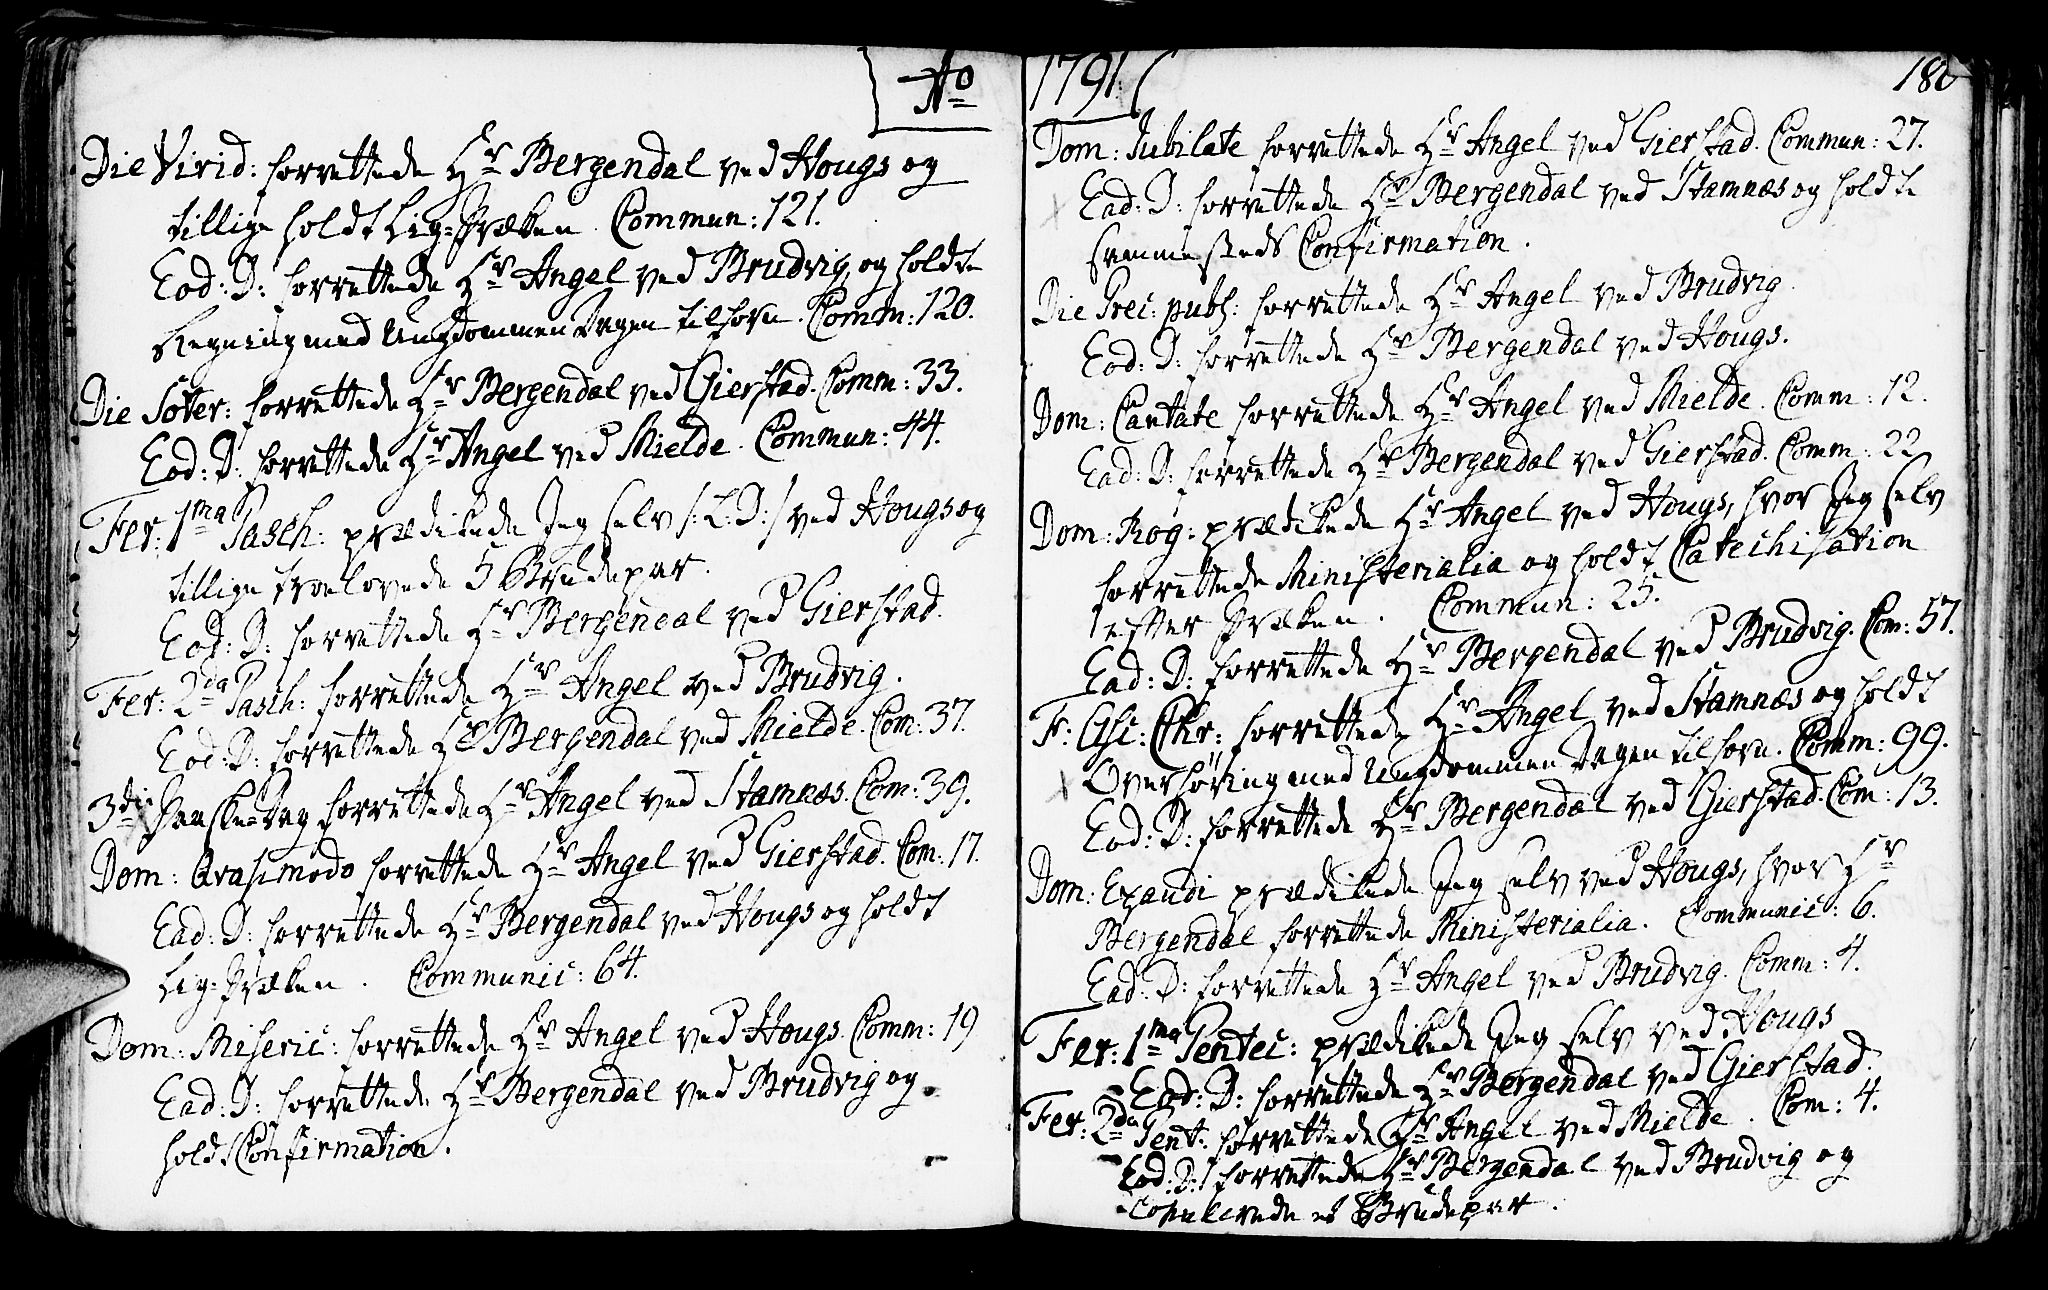 Ao
Die Virid: forrettede Hr Bergendal ved Hougs og
tillige holdt Lig-Præken. Commun: 121.
Eod: D: forrettede Hr Angel ved Brudvig, og holdte
med Ungdommen Dagen tilforn. Comm: 120.
Die Soter: forrettede Hr Bergendal ved Gierstad. Comm: 33.
Eod: D: forrettede Hr Angel ved Mielde. Commun: 44.
Fer: 1ma Pasch: prædikede Jeg selv /: L: D: / ved Hougs og
tillige troelovede 5 Brudepar.
Eod: D: forrettede Hr Bergendal ved Gierstad.
Fer: 2da Pasch: forrettede Hr Angel ved Brudvig.
Eod: D: forrettede Hr Bergendal ved Mielde. Com: 37.
3die Paaske-Dag forrettede Hr Angel ved Stamnæs. Com: 39.
Dom: Qvasimodo forrettede Hr Angel ved Gierstad. Com: 17.
Ead: D: forrettede Hr Bergendal ved Hougs og holdt
Lig-Præken. Communic: 64.
Dom: Miseric: forrettede Hr Angel ved Hougs. Comm: 19
Ead: D: forrettede Hr Bergendal ved Brudvig og
holdt Confirmation.
1791
180
Dom: Jubilate forrettede Hr Angel ved Gierstad. Commun: 27.
Ead: D: forrettede Hr Bergendal ved Stamnæs og holdte
sammesteds Confirmation.
Die Prec: publ: forrettede Hr Angel ved Brudvig.
Eod: D: forrettede Hr Bergendal ved Hougs.
Dom: Cantate forrettede Hr Angel ved Mielde. Comm: 12.
Ead: D: forrettede Hr Bergendal ved Gierstad. Comm: 22
Dom: Rog: prædikede Hr Angel ved Hougs, hvor Jeg selv
forrettede Ministerialia og holdt Catechisation
efter Præken. Commun: 25.
Ead: D: forrettede Hr Bergendal ved Brudvig. Com: 57.
F: Asc: Chr: forrettede Hr Angel ved Stamnæs og holdt
Overhøring med Ungdommen Dagen tilforn. Comm: 99.
Eod: D: forrettede Hr Bergendal ved Gierstad. Com: 13.
Dom: Exaudi prædikede Jeg selv ved Hougs, hvor Hr
Bergendal forrettede Ministerialia. Communic: 6.
Ead: D: forrettede Hr Angel ved Brudvig. Comm: 4.
Fer: 1ma Pentec: prædikede Jeg selv ved Hougs
Eod: D: forrettede Hr Bergendal ved Gierstad.
Fer: 2da Pent: forrettede Hr Angel ved Mielde. Com: 4.
Eod: D: forrettede Hr Bergendal ved Brudvig og
Copulerede et Brudepar.